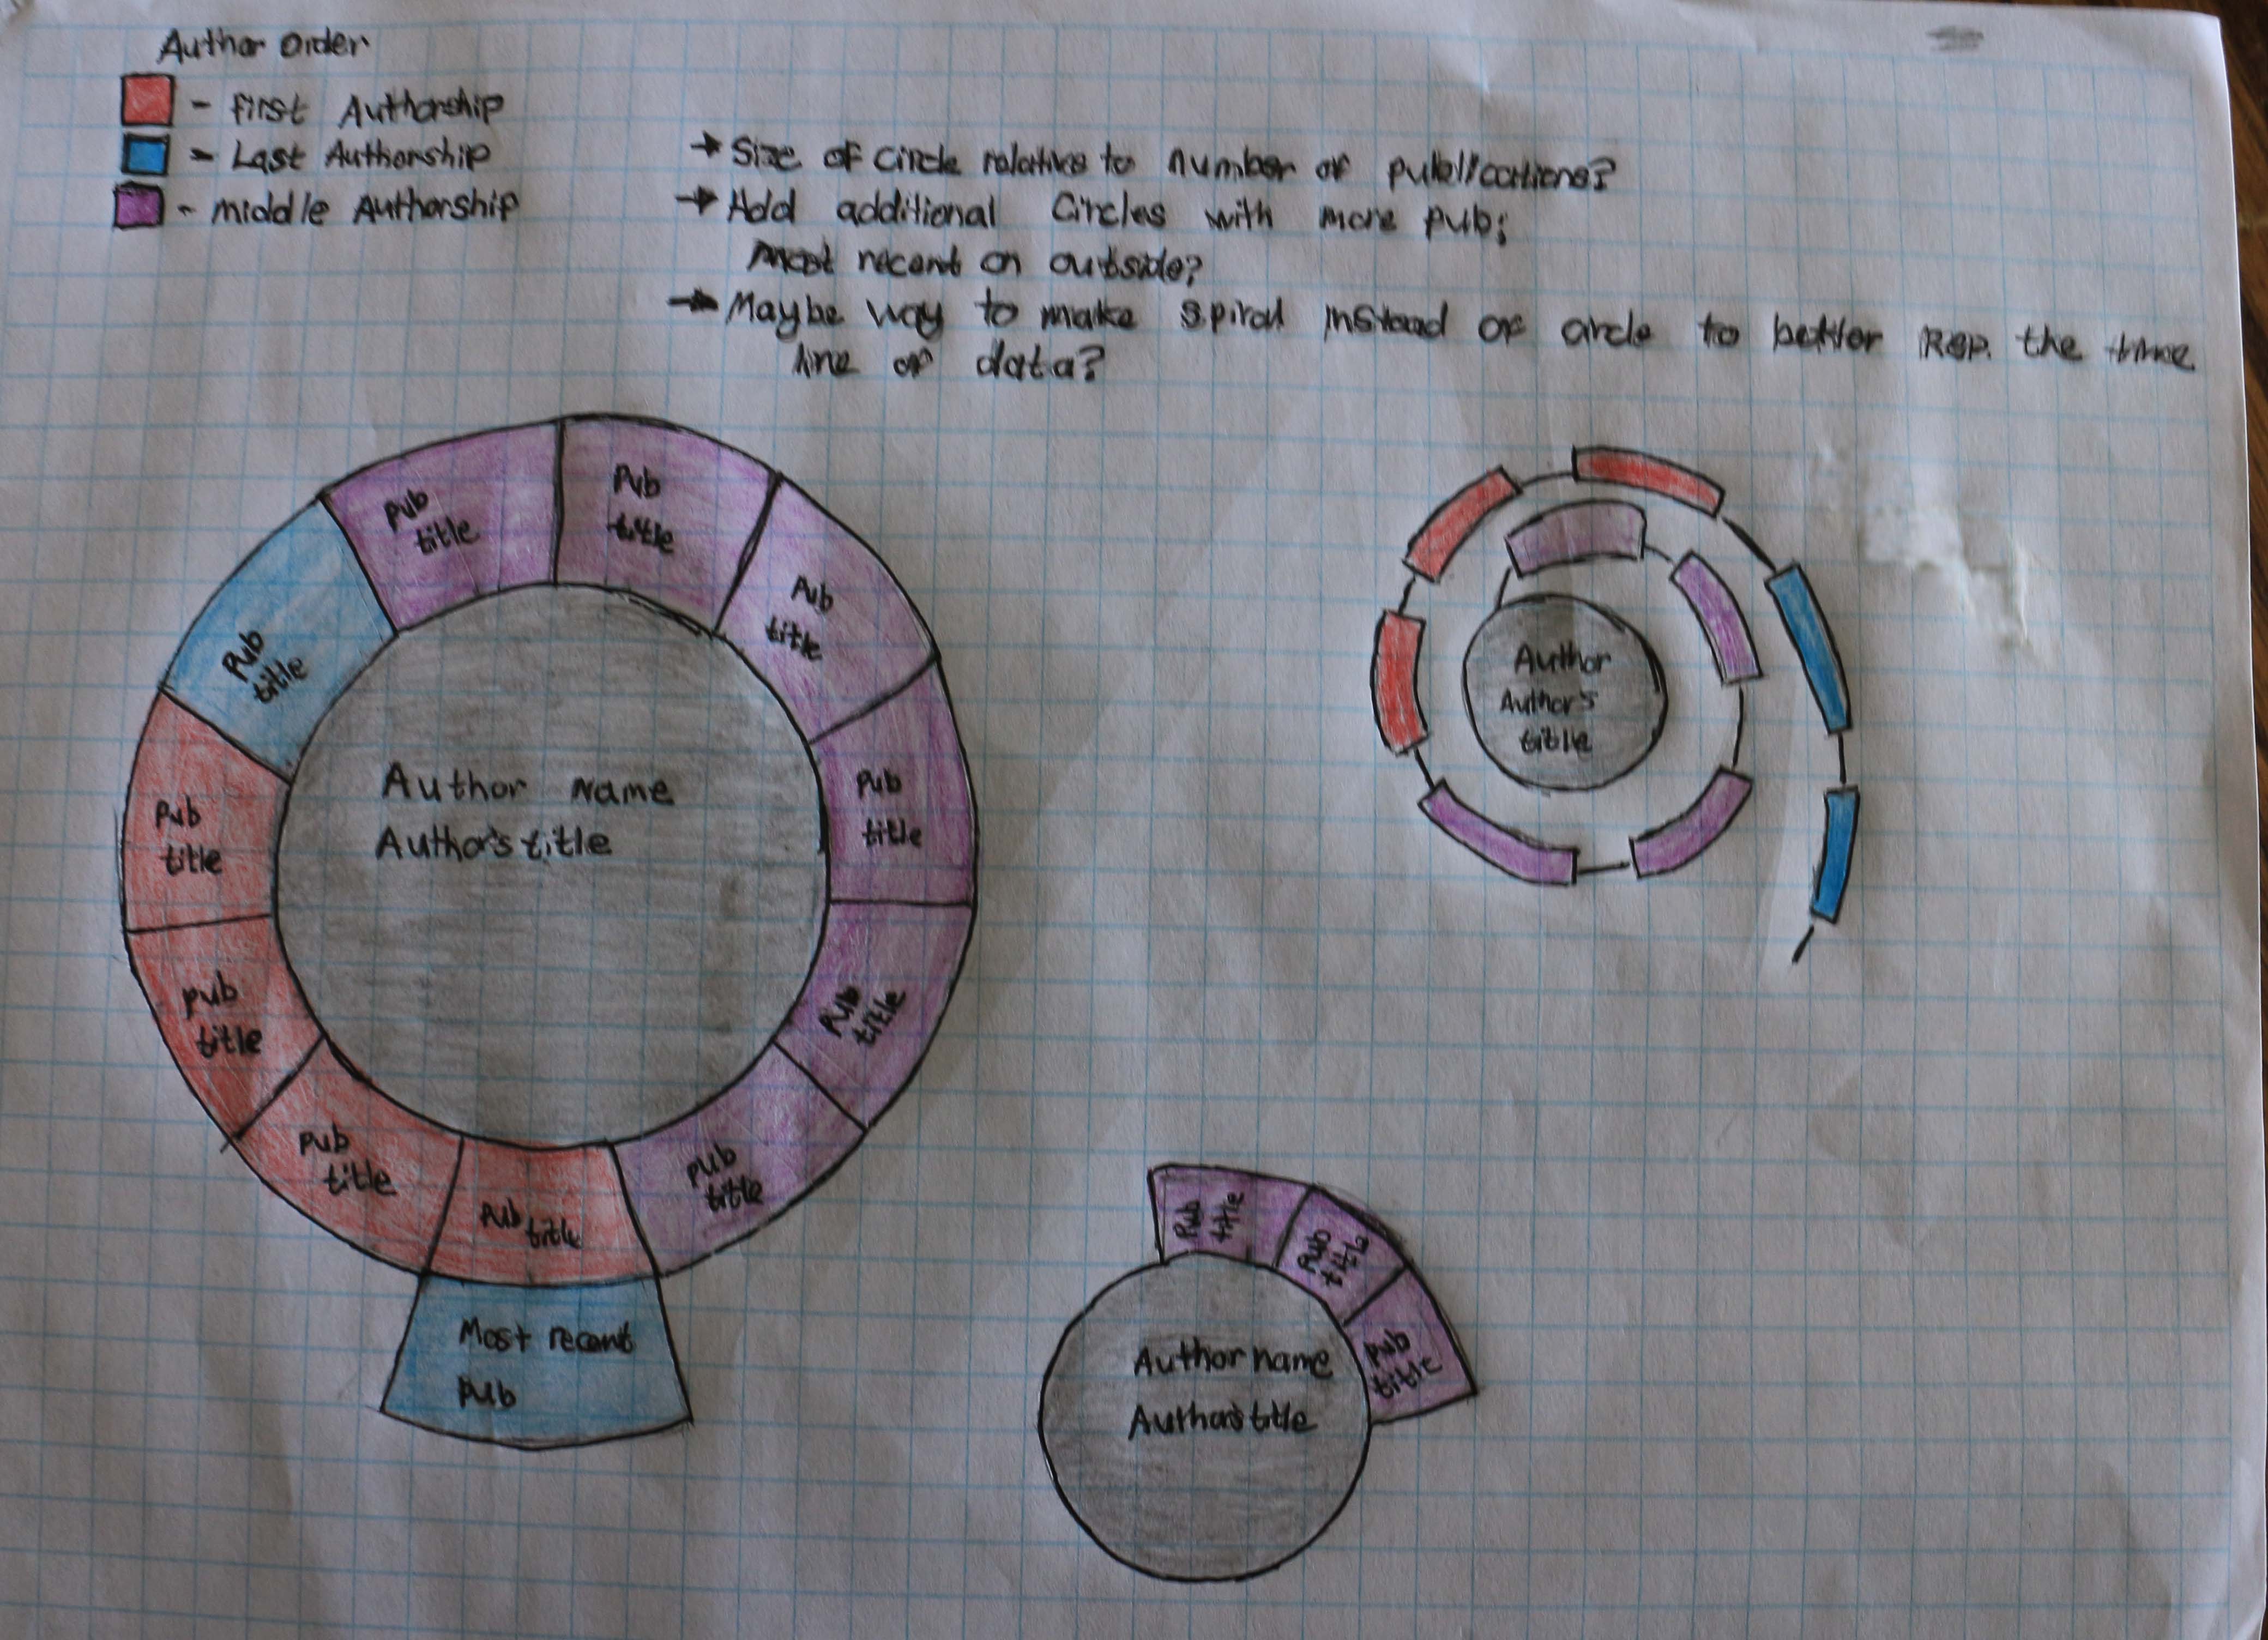 Author Order
- first Authorship
- Last Authorship
- middle Authorship
→ Size of circle relative to number of publications?
→ Add additional Circles with more pub;
most recent on outside?
→ Maybe way to make spiral instead of circle to better Rep. the time
line of data?
Pub
title
Pub
title
Pub
title
Pub
title
Pub
title
Pub
title
Pub title
Pub
title
pub
title
Pub
title
Pub
title
Most recent
pub
Author Name
Author's title
Author
Author's
title
Pub
title
Pub
title
Pub
title
Author name
Author's title